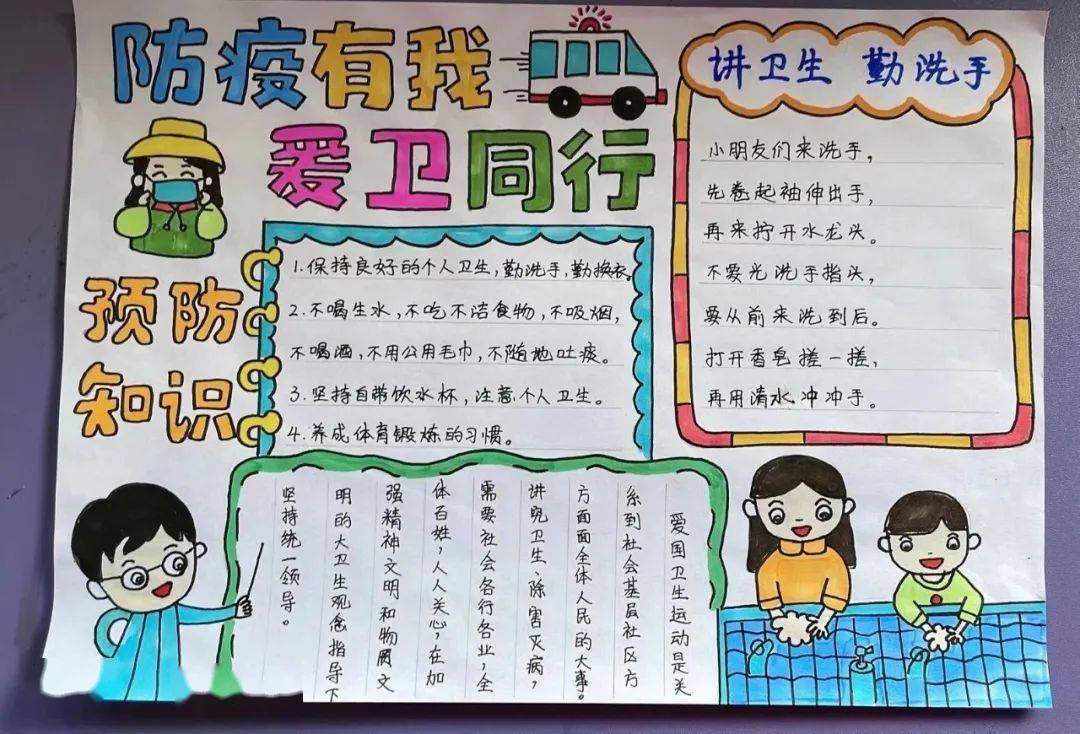 防疫有我
爱卫同行
讲卫生 勤洗手
小朋友们来洗手，
先卷起袖伸出手，
再来拧开水龙头。
不要光洗手指头，
要从前来洗到后。
打开香皂搓一搓，
再用清水冲冲手。
预防
知识
1.保持良好的个人卫生，勤洗手，勤换衣。
2.不喝生水，不吃不洁食物，不吸烟，
不喝酒，不用公用毛巾，不随地吐痰。
3.坚持自带饮水杯，注意个人卫生。
4.养成体育锻炼的习惯。
爱国卫生运动是关
系到社会基层社区方
方面面全体人民的大事。
讲究卫生、除害灭病，
需要社会各行各业，全
体百姓，人人关心，在加
强精神文明和物质文
明的大卫生观念指导下
坚持统一领导。